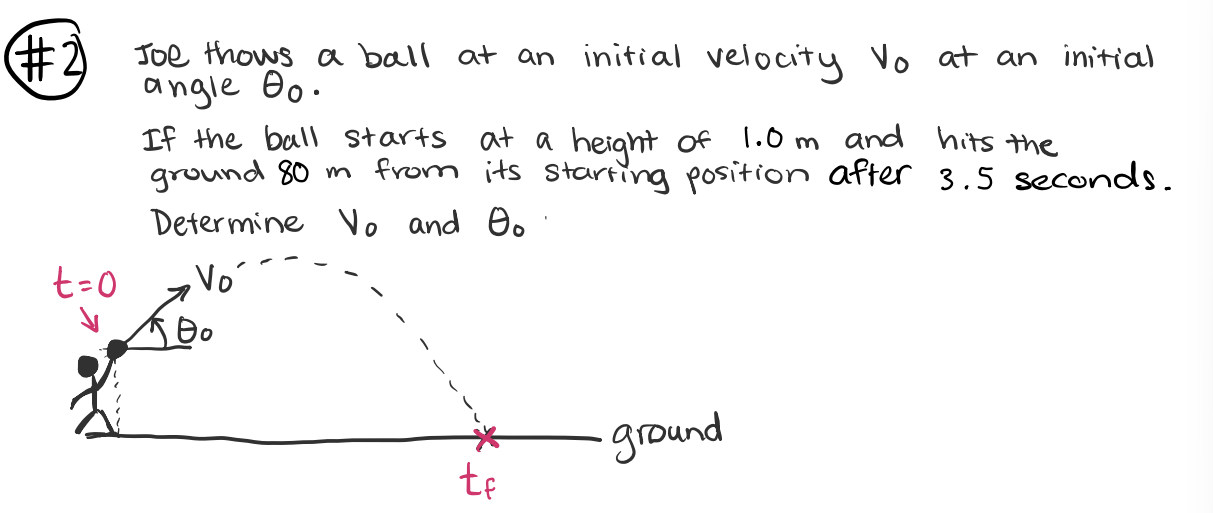 #2
Joe thows a ball at an initial velocity V₀ at an initial
angle θ₀.
If the ball starts at a height of 1.0 m and hits the
ground 80 m from its starting position after 3.5 seconds.
Determine V₀ and θ₀
t=0
V₀
θ₀
ground
t_f